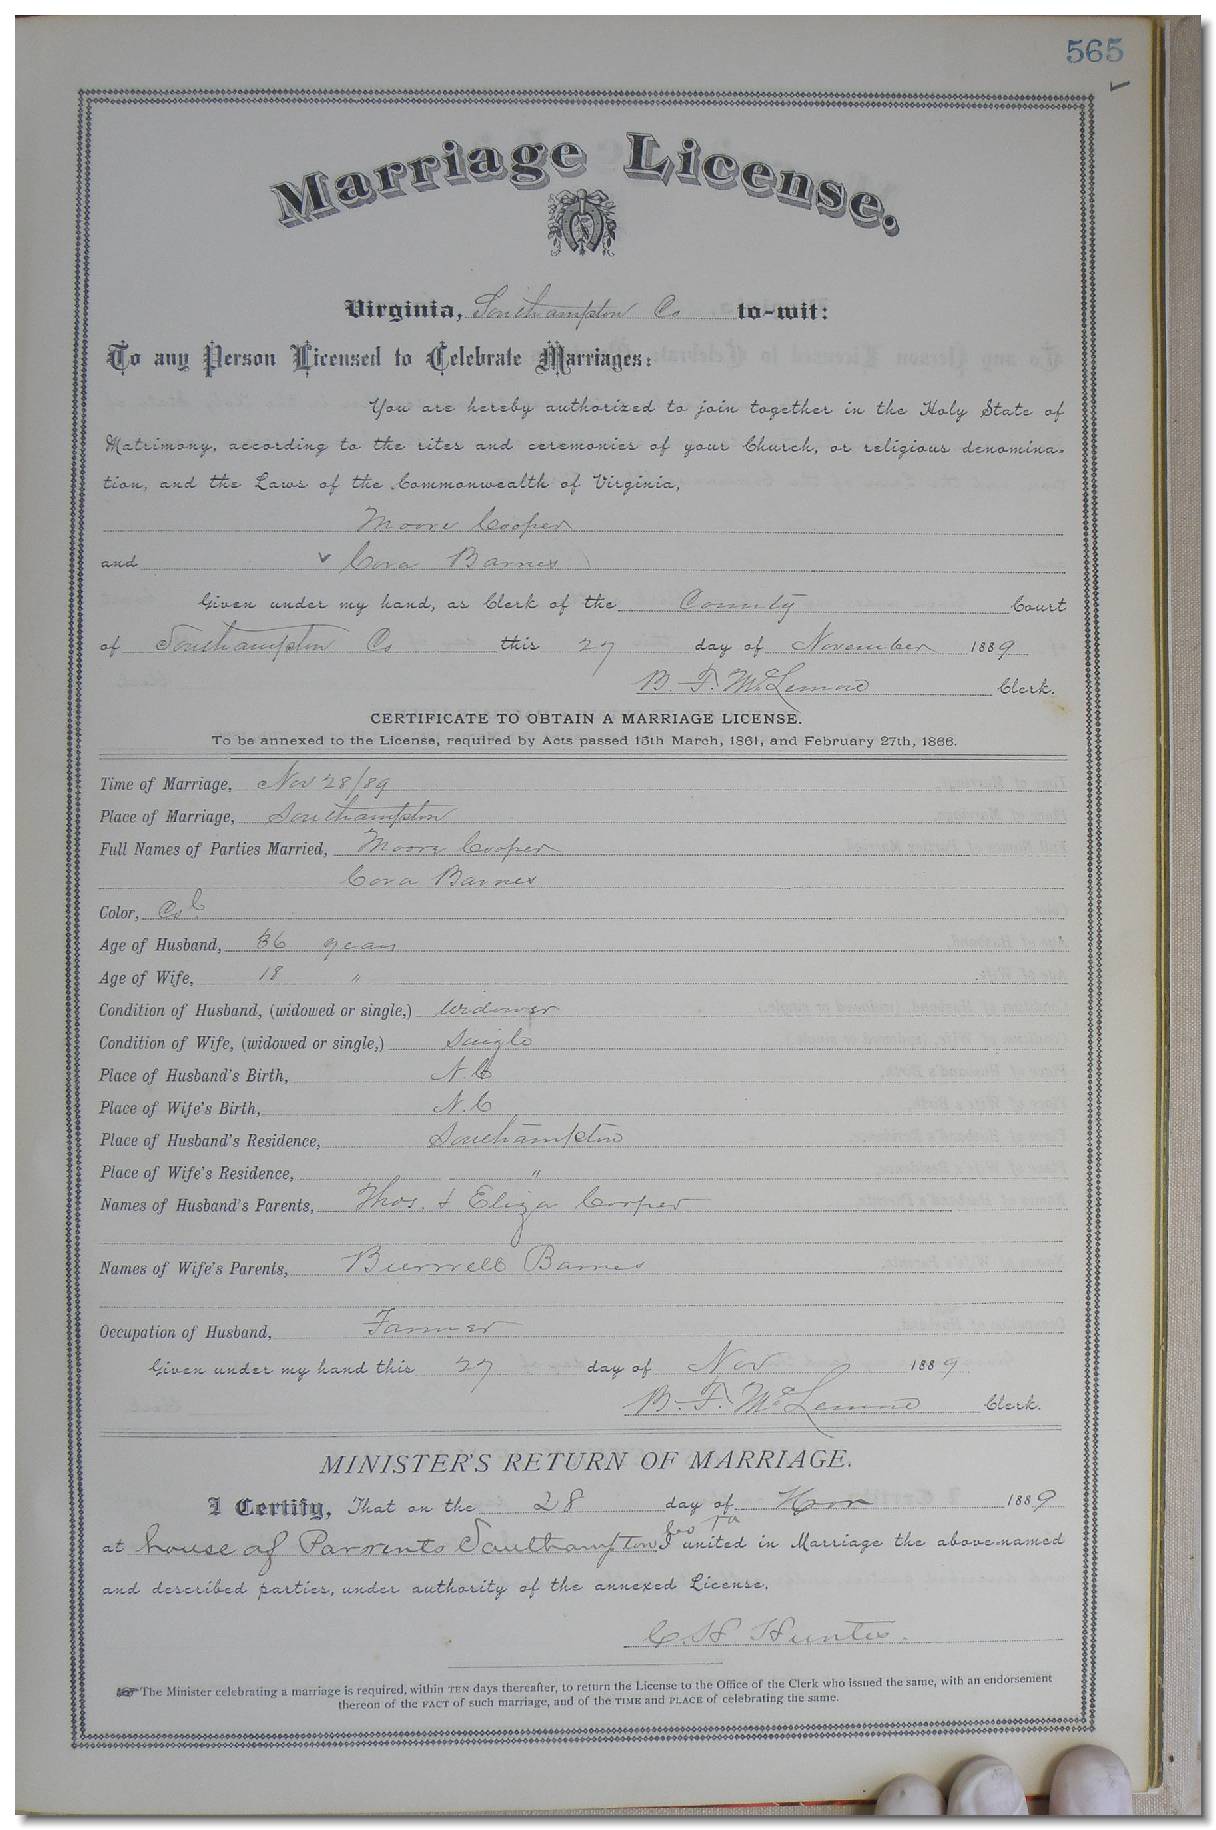 565
Marriage License.
Virginia, Southampton Co to-wit:
To any Person Licensed to Celebrate Marriages:
You are hereby authorized to join together in the Holy State of
Matrimony, according to the rites and ceremonies of your Church, or religious denomina-
tion, and the Laws of the Commonwealth of Virginia,
Moore Cooper
and Cora Barnes
Given under my hand, as Clerk of the County Court
of Southampton Co this 27 day of November 1889
B. F. McLemore Clerk.
CERTIFICATE TO OBTAIN A MARRIAGE LICENSE.
To be annexed to the License, required by Acts passed 15th March, 1861, and February 27th, 1866.
Time of Marriage, Nov 28/89
Place of Marriage, Southampton
Full Names of Parties Married, Moore Cooper
Cora Barnes
Color, Col
Age of Husband, 36 years
Age of Wife, 18 "
Condition of Husband, (widowed or single,) widower
Condition of Wife, (widowed or single,) Single
Place of Husband's Birth, N.C
Place of Wife's Birth, N.C
Place of Husband's Residence, Southampton
Place of Wife's Residence, "
Names of Husband's Parents, Thos. & Eliza Cooper
Names of Wife's Parents, Burwell Barnes
Occupation of Husband, Farmer
Given under my hand this 27 day of Nov 1889
B. F. McLemore Clerk.
MINISTER'S RETURN OF MARRIAGE.
I Certify, That on the 28 day of 1889
at house of Parrents Southampton Co Va I united in Marriage the above-named
and described parties, under authority of the annexed License.
C. H Hunter.
The Minister celebrating a marriage is required, within TEN days thereafter, to return the License to the Office of the Clerk who issued the same, with an endorsement
thereon of the FACT of such marriage, and of the TIME and PLACE of celebrating the same.